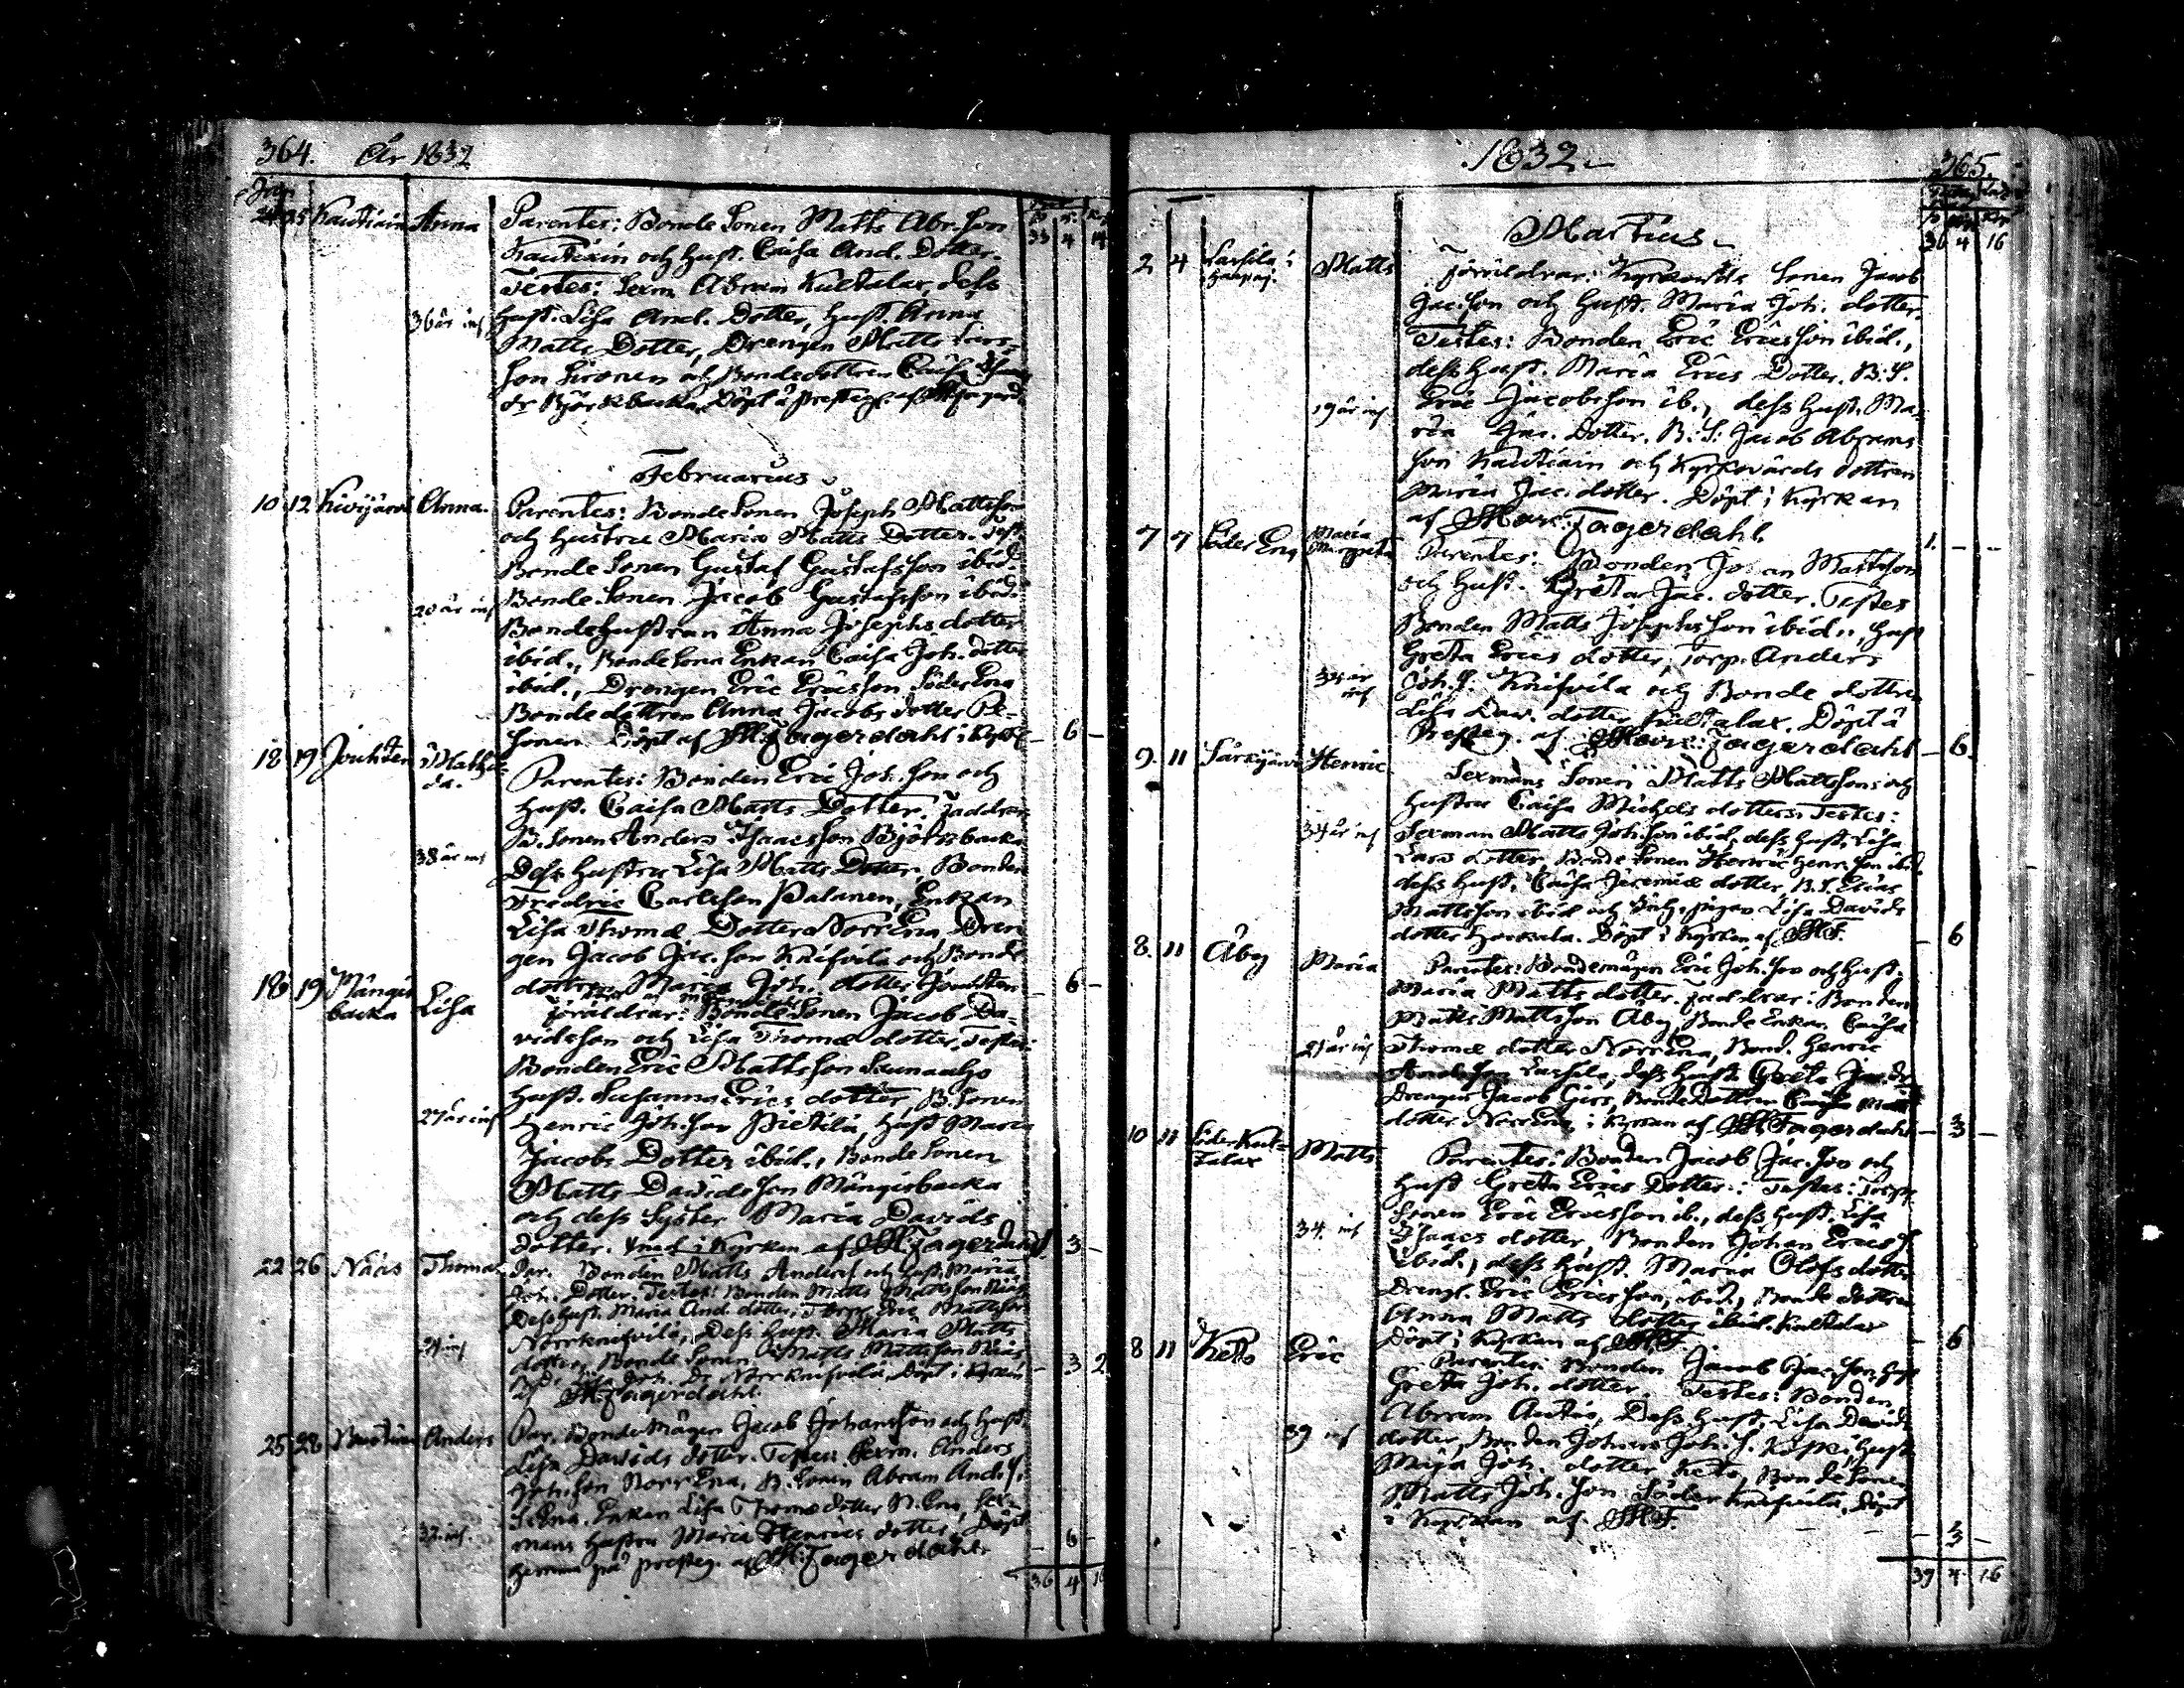 364. År 1832
24 25 Kautiain Anna Parentes: Bonde Sonen Matts Abr.son
33 4 14
Kautiain och Hust. Caisa And. Dotter.
Testes: Sexm. Abram Kultalax, dess
36 år Hust. Lisa And. Dotter, Hust. Anna
Matts Dotter, Drengen Matts Lars-
son Sironen och Bondedottren Caisa
Björkbacka, Döpt å
Februarius
10 12 Kivijärvi Anna. Parentes: Bonde Sonen Joseph Mattsson
och Hustru Maria Matts Dotter. Test.
Bonde Sonen Gustaf Gustafsson ibid.
20 år Bonde Sonen Jacob Gustafsson ibid.
Bondehustrun Anna Josephs dotter
ibid., Bonde Sona Enkan Caisa Joh. dotter
ibid., Drengen Eric Ericsson Söder Ena
Bondedottren Anna Jacobs dotter Pe-
sonen Döpt af M. Fagerdahl i Kyrk. – 6 –
18 19 Jouhten Mathil-
da. Parentes: Bonden Eric Joh. son och
Hust. Caisa Matts Dotter. Faddrar
B. Sonen Anders Isaacsson Björkbacka
38 år Dess Hustru Lisa Matts Dotter. Bonden
Fredric Carlsson Palanen, Enkan
Lisa Thomæ Dotter Norr Ena, Dren
gen Jacob Jac. son Knifvila och Bonde
dottren Maria Joh. dotter Jouhten – 6 –
18 19 Mångis
backa Lisa Föräldrar: Bonde Sonen Jacob Da-
vidsson och Lisa Thomæ dotter. Testes:
Bonden Eric Mattsson Saunaaho
Hust. Susanna Erics dotter, B. Sonen
27 år Henric Joh. son Pietilä, Hust Maria
Jacobs Dotter ibid., Bonde Sonen
Matts Davidsson Mångisbacka
och dess Syster Maria Davids
dotter. i Kyrkan af M. Fagerdahl 3 –
22 26 Näās Thomas Par. Bonden Matts Anders. och Hust. Maria
Joh. Dotter. Testes: Bonden Matts Mattsson
Dess hust. Maria And. dotter, Torp. Eric Mattsson
Norrknifvila, Dess Hust. Maria Matts
dotter, Bonde Sonen Matts Mattsson
Joh. Dr Norrknifvila, Döpt i Kyrk. – 3 2
af M. Fagerdahl.
25 28 Anders Par. Bonde Mågen Jacob Johansson och Hust.
Lisa Davids dotter. Testes: Sexm. Anders
Joh. son Norr Ena, B. Sonen Abram And. S.
Enkan Lisa Thomæ dotter N. Ena, Sex-
mans Hustru Maria Henrics dotter. Döpt
hemma på presteg. af M. Fagerdahl – 6 –
36 4 16
1832. 365.
Martius
36 4 16
2 4 Lassila i
Matts Föräldrar: Kyrkovärds Sonen Jacob
Jac.son och Hust. Maria Joh. dotter.
Testes: Bonden Eric Ericsson ibid.,
dess Hust. Maria Erics Dotter. B. S.
19 år Eric Jacobsson ib., dess Hust. Ma-
ria Jac. dotter. B. S: Jacob Abrams
son Kautiain och Kyrkovärds dottren
Maria Jac. dotter. Döpt i Kyrkan
af Marc: Fagerdahl
7 7 Söder Ena Maria
Margareta Parentes: Bonden Johan Mattsson 1. – –
och Hust. Greta Jac. dotter. Testes
Bonden Matts Josephsson ibid., Hust
Greta Erics dotter, Torp. Anders
34 år Joh. S. Knifvila och Bonde dottren
Lisa Dav. dotter Kultalax. Döpt å
Presteg. af Marc: Fagerdahl – 6
9. 11 Särkijärvi Henric Sexmans Sonen Matts Mattssons och
Hustru Caisa Michels dotters. Testes:
34 år Sexman Matts Joh. son ibid, dess Hust. Lisa
Lars dotter, Bonde Sonen Henric Henr. son ibid.
dess Hust. Caisa Jeremiæ dotter, B. S. Elias
Mattsson ibid och pigan Lisa Davids
dotter. Döpt i Kyrkan af M. F. – 6
8. 11 Åby Maria Parentes: Bondemågen Eric Joh. son och Hust.
Maria Matts dotter. Faddrar: Bonden
Matts Mattsson Åby, Bonde Enkan Caisa
21 år Thomæ dotter Norr Ena, Bond. Henric
Andersson Lassila, dess Hust. Greta Jac. dr
Drengen Jacob Girs, Bonde Dottren Caisa Matts
dotter Norr Ena, i Kyrkan af M. Fagerdahl – 3 –
10 11 Söder Kul-
talax Matts Parentes: Bonden Jacob Jac. son och
Hust Greta Erics Dotter: Testes: Torp.
Sonen Eric Ericsson ib., dess Hust. Lisa
34. Isaacs dotter, Bonden Johan Erics S.
ibid., dess Hust. Maria Olofs dotter
Dreng. Eric Ericsson, ibid., Bonde dottren
Anna Matts dotter ibid. Kultalax
Döpt i Kyrkan af M. F. – 6
8 11 Keto Eric Parentes: Bonden Jacob Jac. son, Hust
Greta Joh. dotter. Testes: Bonden
Abram Antus, Dess Hust. Lisa Davids
39 dotter, Bonden Johan Joh. S. Hust.
Maja Joh. dotter Keto, Bonde Sonen
Matts Joh. son Söder Knifvila. Döpt
i Kyrkan af M. F. – 3 –
39 4 16